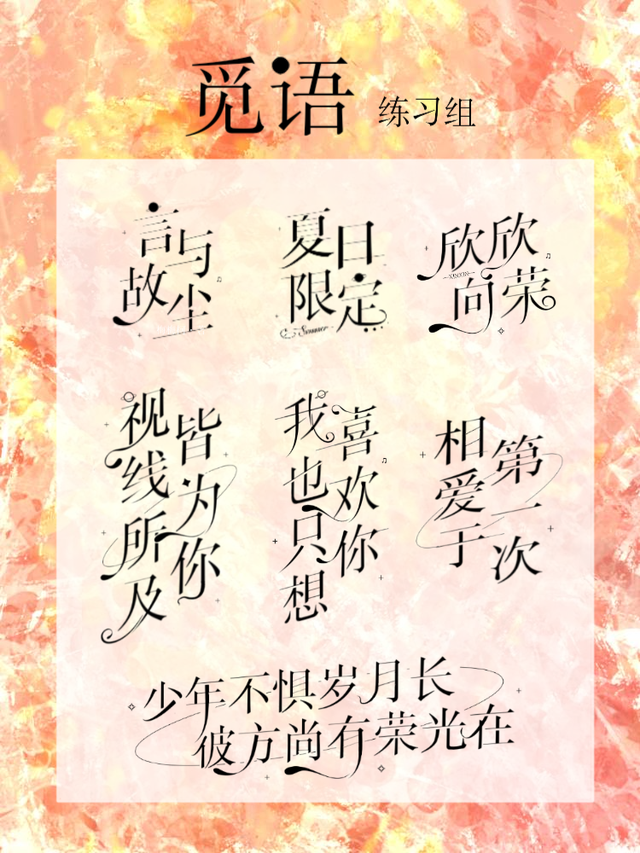 觅语 练习组
言与
故尘
夏日
限定
Summer
欣欣
向荣
视线所及
皆为你
我也只想
喜欢你
相爱于
第一次
少年不惧岁月长
彼方尚有荣光在